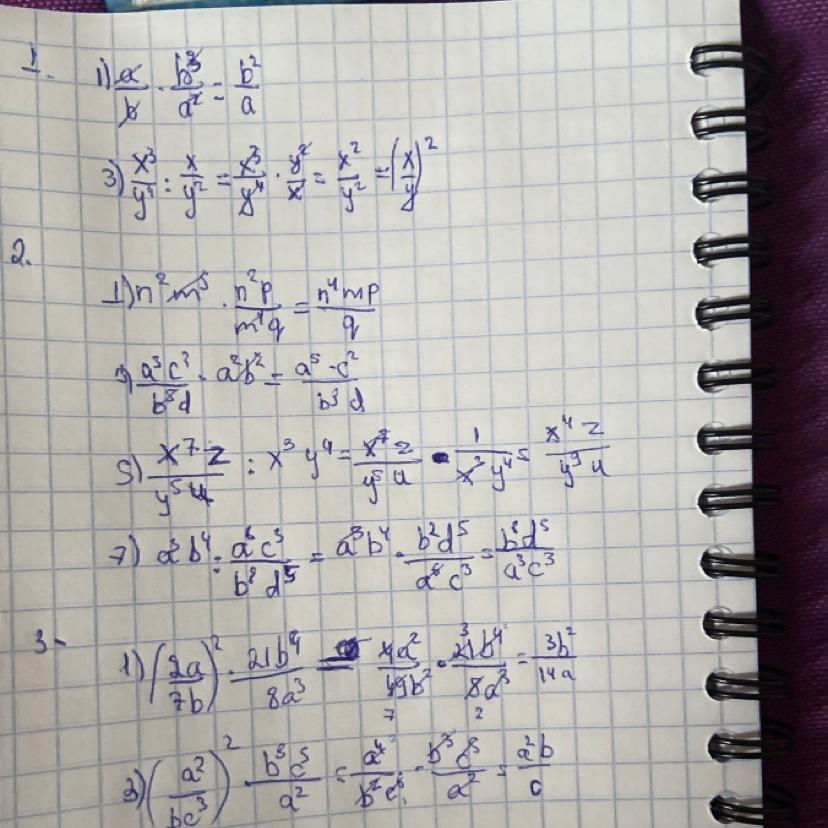 1. 1) a/b · b³/a² = b²/a
3) x³/y⁴ : x/y² = x³/y⁴ · y²/x = x²/y² = (x/y)²
2.
1) n²m⁵ · n²p/m⁴q = n⁴mp/q
a³c³/b⁸d · a²b² = a⁵ · c²/b³d
5) x⁷z/y⁵u : x³y⁴ = x⁷z/y⁵u · 1/x³y⁴ = x⁴z/y⁹u
7) a³b⁴ : a⁶c³/b²d⁵ = a³b⁴ · b²d⁵/a⁶c³ = b⁶d⁵/a³c³
3-
1) (2a/7b)² · 21b⁴/8a³ = 4a²/49b² · 21b⁴/8a³ = 3b²/14a
7 3 2
(a²/bc³)² · b³c⁵/a² = a⁴/b²c⁶ · b³c⁵/a² = a²b/c